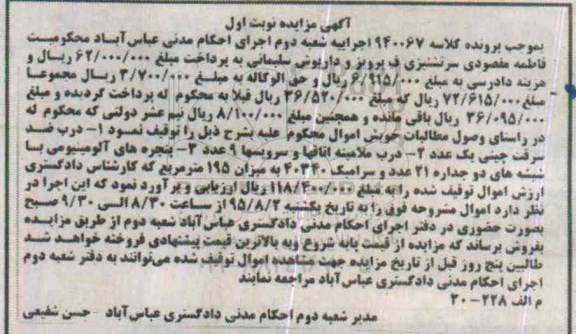 آگهی مزایده نوبت اول
بموجب پرونده کلاسه ۹۴۰۰۶۷ اجراییه شعبه دوم اجرای احکام مدنی عباس‌آباد محکومیت
فاطمه مقصودی سرتشنیزی ف پرویز و داریوش سلیمانی به پرداخت مبلغ ۶۲/۰۰۰/۰۰۰ ریال و
هزینه دادرسی به مبلغ ۶/۹۱۵/۰۰۰ ریال و حق الوکاله به مبلغ ۳/۷۰۰/۰۰۰ ریال مجموعا
مبلغ ۷۲/۶۱۵/۰۰۰ ریال که مبلغ ۳۶/۵۲۰/۰۰۰ ریال قبلا به محکوم له پرداخت گردیده و مبلغ
۳۶/۰۹۵/۰۰۰ ریال باقی مانده و همچنین مبلغ ۸/۱۰۰/۰۰۰ ریال نیم عشر دولتی که محکوم له
در راستای وصول مطالبات خویش اموال محکوم علیه بشرح ذیل را توقیف نمود ۱- درب ضد
سرقت چینی یک عدد ۲- درب ملامینه اتاقها و سرویسها ۹ عدد ۳- پنجره های آلومینیومی با
شیشه های دو جداره ۲۱ عدد و سرامیک ۴۰*۴۰ به میزان ۱۹۵ مترمربع که کارشناس دادگستری
ارزش اموال توقیف شده را به مبلغ ۱۱۸/۴۰۰/۰۰۰ ریال ارزیابی و برآورد نمود که این اجرا در
نظر دارد اموال مشروحه فوق را به تاریخ یکشنبه ۹۵/۸/۲ از ساعت ۸/۳۰ الی ۹/۳۰ صبح
بصورت حضوری در دفتر اجرای احکام مدنی دادگستری عباس‌آباد شعبه دوم از طریق مزایده
بفروش برساند که مزایده از قیمت پایه شروع و به بالاترین قیمت پیشنهادی فروخته خواهد شد
طالبین پنج روز قبل از تاریخ مزایده جهت مشاهده اموال توقیف شده می‌توانند به دفتر شعبه دوم
اجرای احکام مدنی دادگستری عباس‌آباد مراجعه نمایند
م الف ۲۲۸-۳۰
مدیر شعبه دوم احکام مدنی دادگستری عباس‌آباد - حسن شفیعی